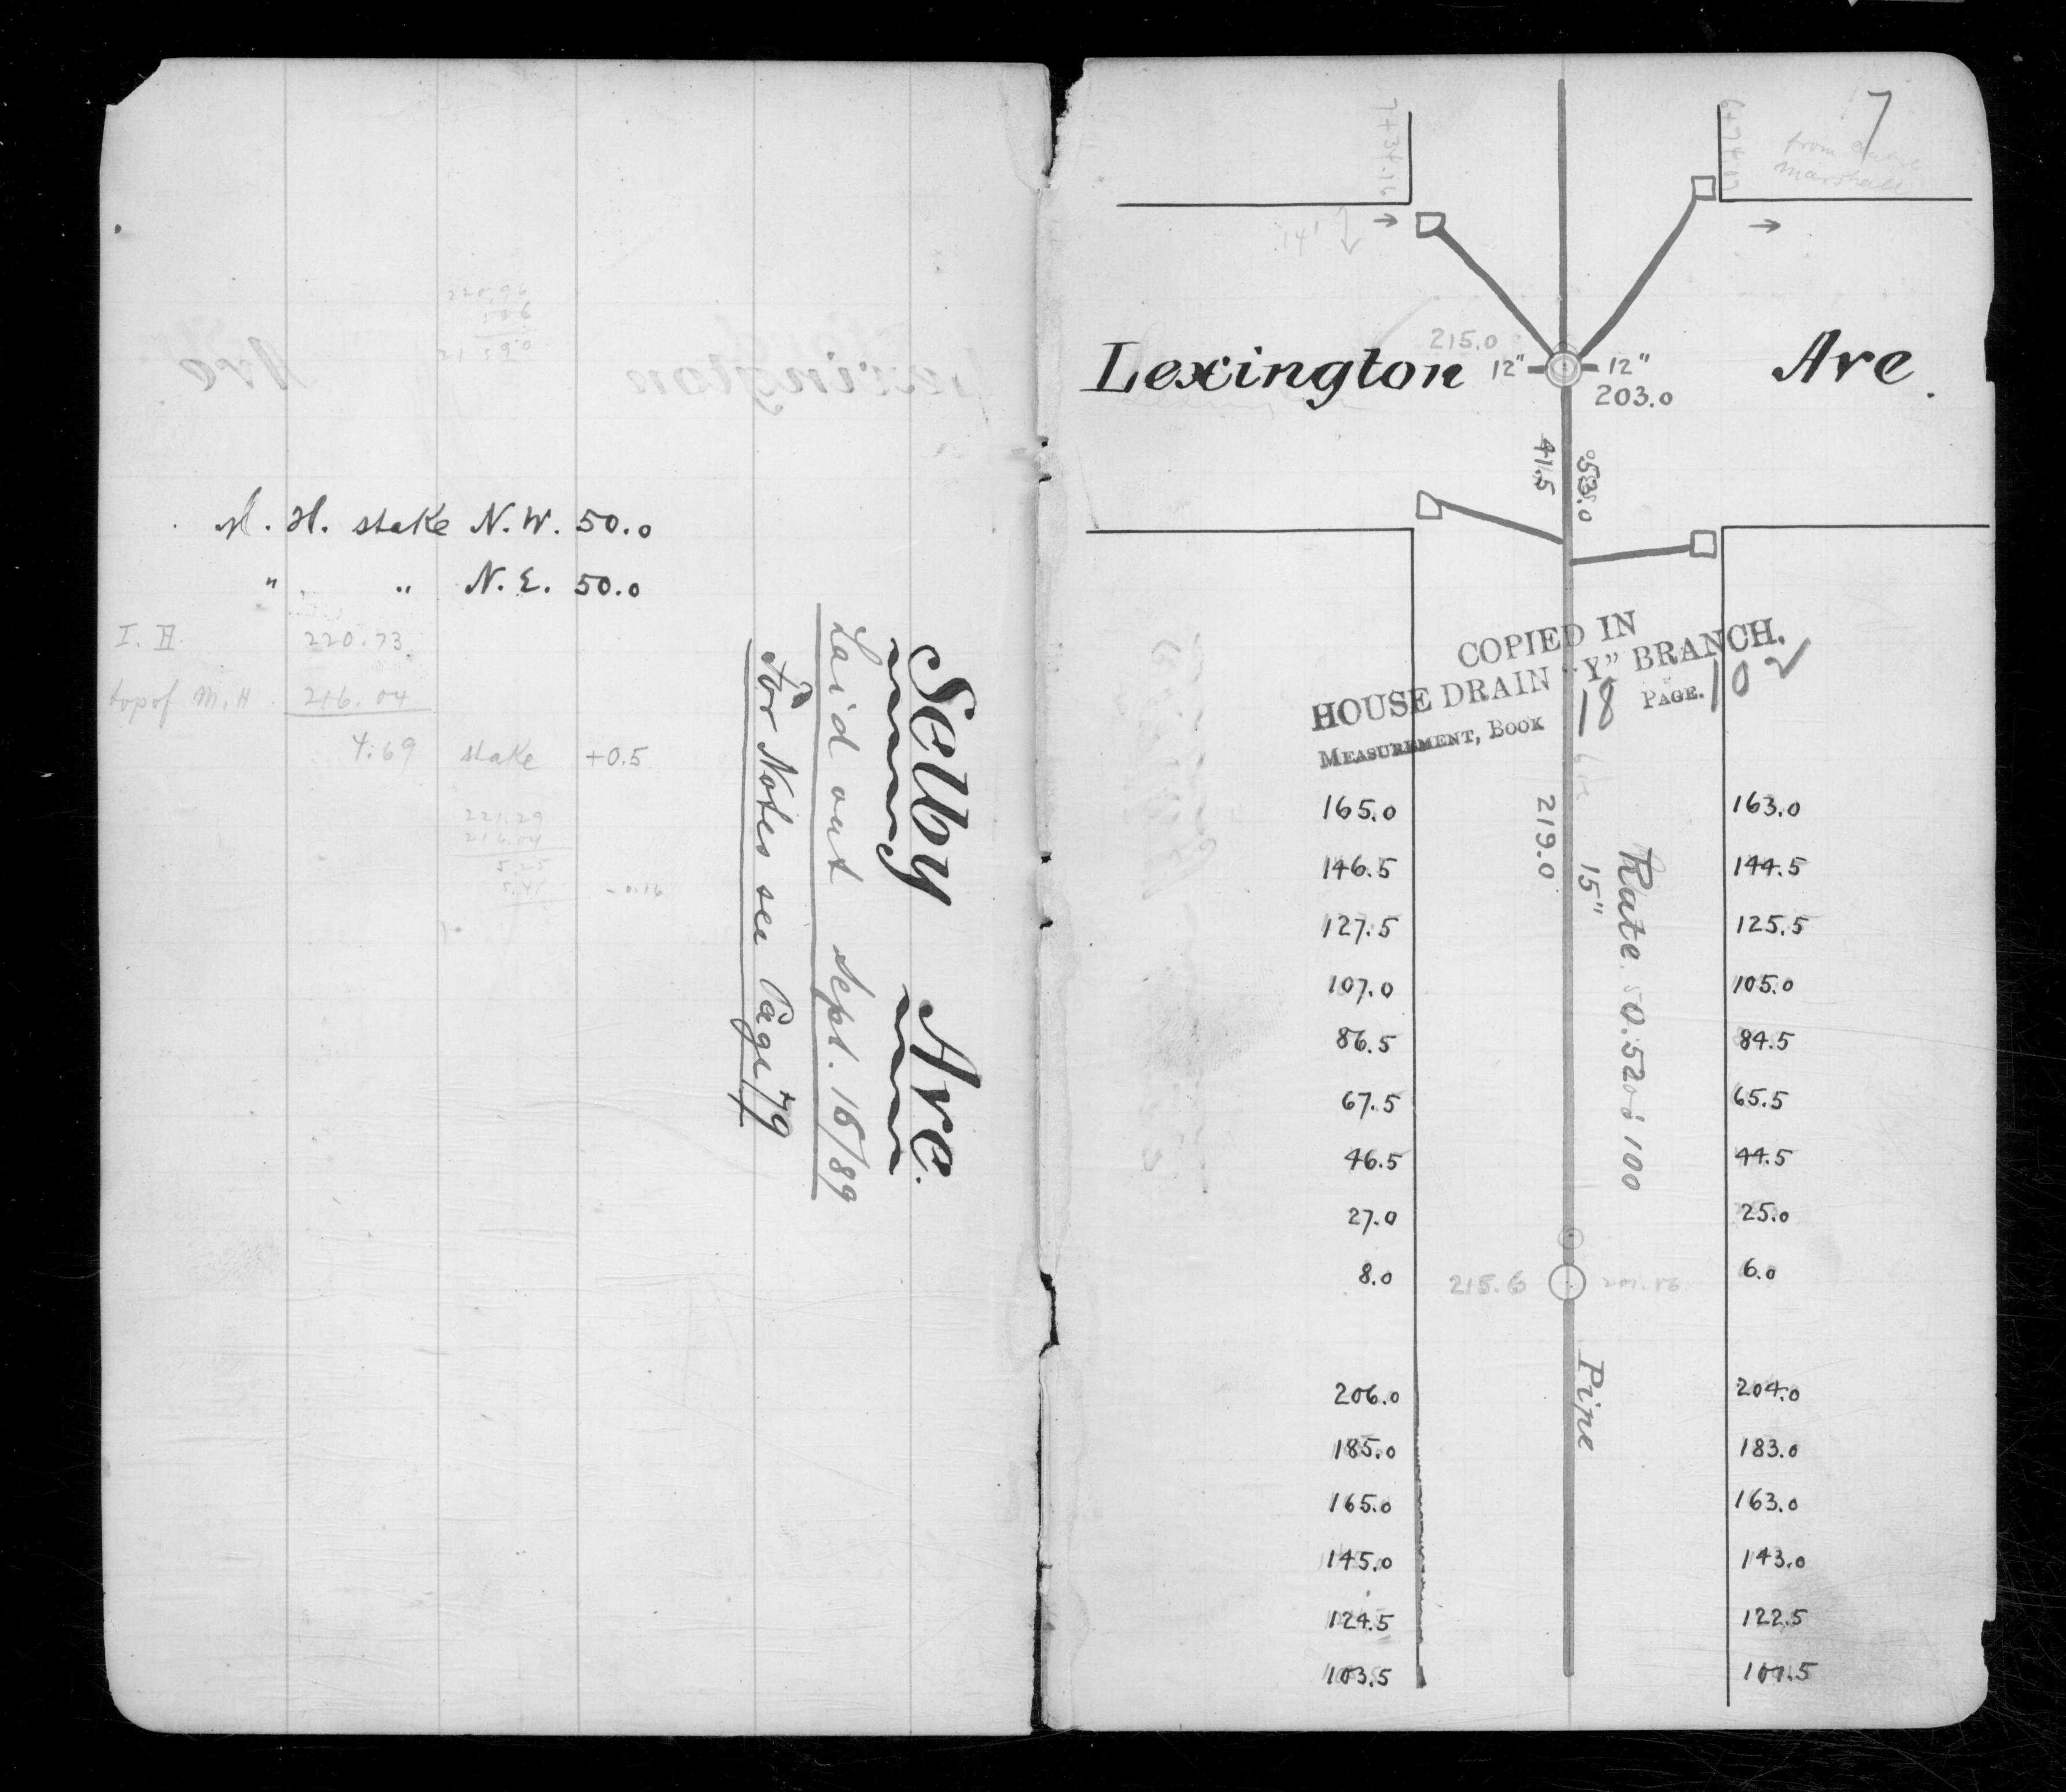 M. H. stake N.W. 50.0
" " N.E. 50.0
I. H. 220.73
top of M.H. 216.04
4.69 stake +0.5
221.29
216.04
5.25
5.41 -0.16
Selby Ave.
Laid out Sept. 16/89
For Notes see Page 79
7
7+34.16
from
Marshall
14'
215.0
Lexington 12" 12" Ave.
203.0
41.5
53.0
COPIED IN
HOUSE DRAIN "Y" BRANCH.
MEASUREMENT, BOOK 18 PAGE. 102
219.0
15"
Rate 0.52 : 100
165.0 163.0
146.5 144.5
127.5 125.5
107.0 105.0
86.5 84.5
67.5 65.5
46.5 44.5
27.0 25.0
8.0 6.0
215.6
Pipe
206.0 204.0
185.0 183.0
165.0 163.0
145.0 143.0
124.5 122.5
103.5 101.5